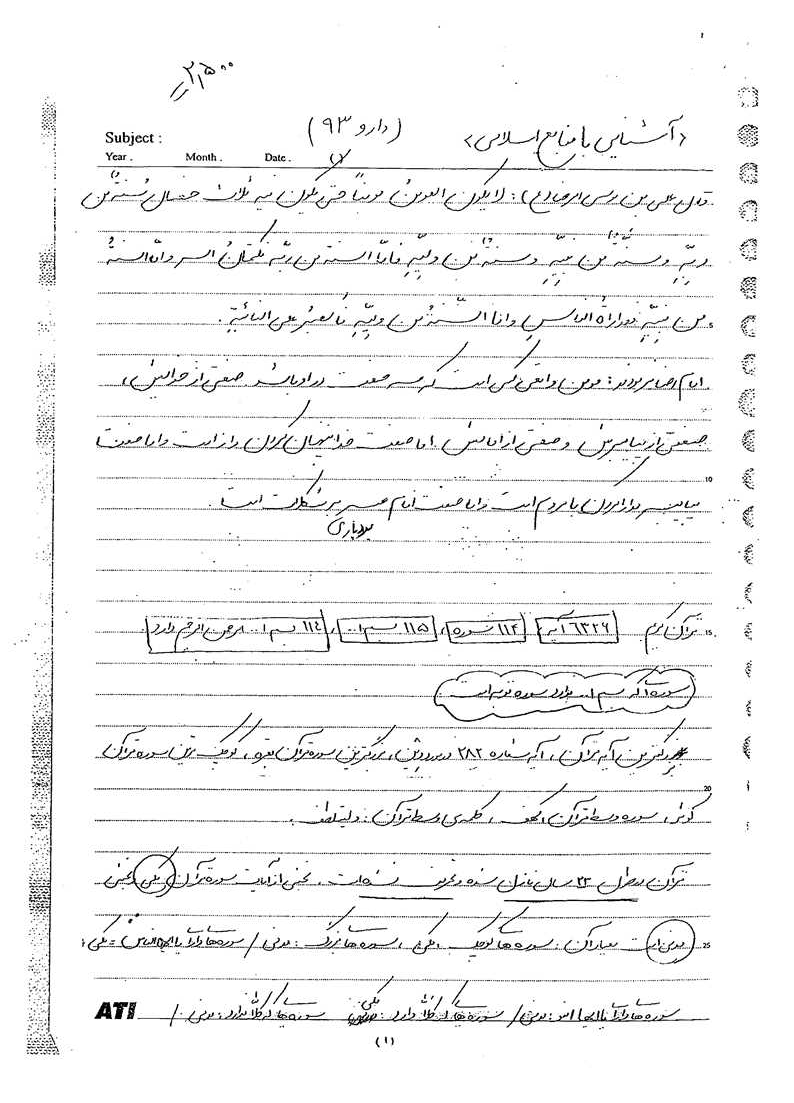 ۲,۵۰۰
Subject :
(دارو ۹۳)
«آشنایی با منابع اسلامی»
Year . Month . Date . (۱)
قال علی بن موسی الرضا (ع): لا یکون المومن مومناً حتی یکون فیه ثلاث خصال سُنةٌ من
ربّهِ و سنةٌ من نبیّهِ و سنةٌ من ولیّهِ فامّا السنة من ربّه فکتمانُ السر و امّا السنةُ
من نبیّهِ فمداراةُ الناسِ و امّا السُّنةُ من ولیّهِ فالصبرُ علی النائبةِ.
امام رضا فرمودند: مومن واقعی کسی است که سه صفت در او باشد صفتی از خدایش،
صفتی از پیامبرش و صفتی از امامش اما صفت خدا پنهان کردن راز است و اما صفت
10
پیامبر مدارا کردن با مردم است و اما صفت امام صبر بر مشکلات است.
بردباری
15 قرآن کریم ۶۳۲۶ آیه ۱۱۴ سوره، ۱۱۵ بسم ا...، ۱۱۴ بسم ا... الرحمن الرحیم دارد.
سوره ای که بسم ا... ندارد سوره توبه است
بزرگترین آیه قرآن، آیه شماره ۲۸۲ بزرگترین سوره قرآن بقره، کوچک ترین سوره قرآن
20
کوثر، سوره وسط قرآن، کهف، کلمه ی وسط قرآن: ولیتلطف.
قرآن در طول ۲۳ سال نازل شده و تحریف نشده است. بخشی از آیات سوره قرآن مکی بخشی
25 مدنی است معیار آن: سوره های کوچک مکی، سوره های بزرگ: مدنی / سوره های دارای یا ایها الناس = مکی:
سوره های دارای یا ایها الذین: مدنی / سوره هایی که کلا دارد: مکی سوره هایی که کلا ندارد: مدنی /
ATI
(۱)